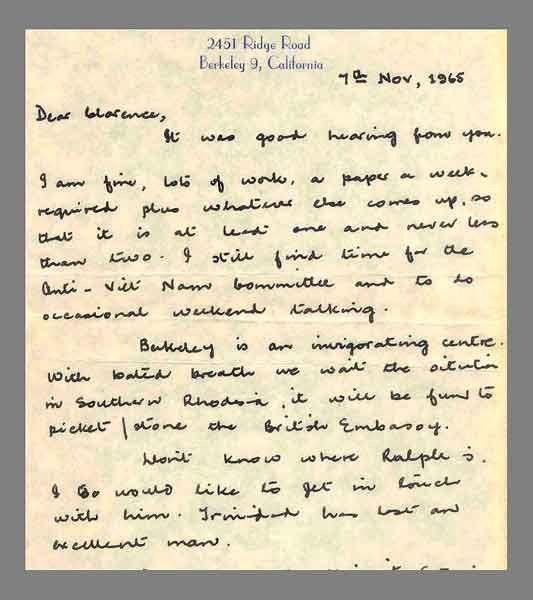 2451 Ridge Road
Berkeley 9, California
7th Nov, 1965
Dear Clarence,
It was good hearing from you.
I am fine, lots of work, a paper a week -
required plus whatever else comes up, so
that it is at least one and never less
than two. I still find time for the
Anti - Viet Nam Committee and to do
occasional weekend talking.
Berkeley is an invigorating centre.
With bated breath we wait the situation
in Southern Rhodesia, it will be fun to
picket / stone the British Embassy.
Don't know where Ralph is.
I too would like to get in touch
with him. Trinidad has lost an
excellent man.